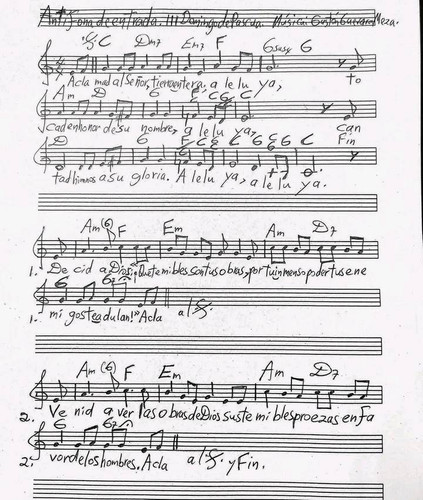 Antífona de entrada. III Domingo de Pascua. Música: Gustavo Guerrero Meza.
C Dm7 Em7 F Gsus4 G
Acla mad al Señor, tierra entera, a le lu ya, to
Am D G C G C
cad en honor de su nombre, a le lu ya, can
D G F C C G C G G C Fin
tad himnos a su gloria. A le lu ya, a le lu ya.
Am (G) F Em Am D7
1. De cid a Dios: ¡Qué te mi bles son tus o bras, por tu in menso poder tus e ne
G G7
1. mi gos te a dulan!" Acla al 𝄋.
Am (G) F Em Am D7
2. Ve nid a ver las o bras de Dios sus te mi bles proezas en fa
G G7
2. vor de los hombres. Acla al 𝄋. y Fin.